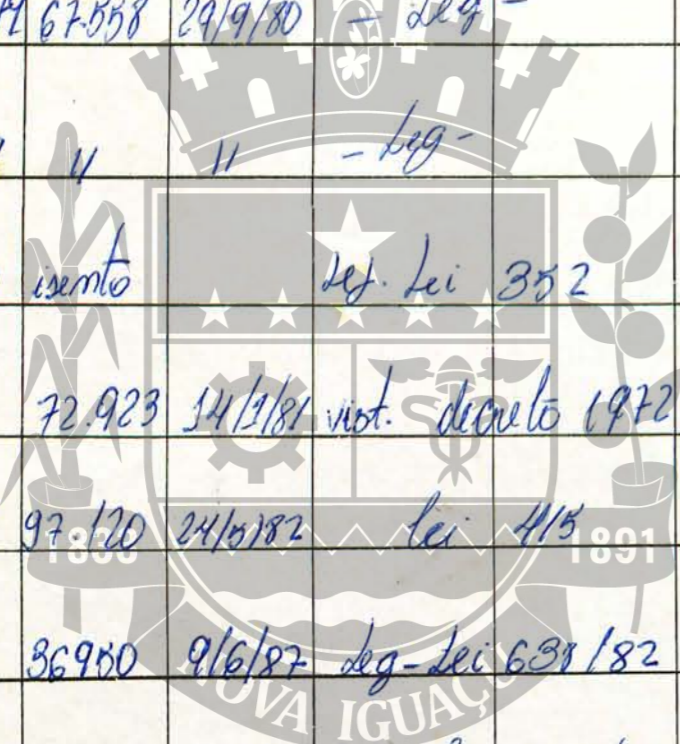 67.558 29/9/80 - Leg -
" " - Leg -
isento Lei 352
72.923 14/1/81 vist. decreto 1972
97.120 24/5/82 lei 415
1833 1891
36950 9/6/87 Leg-Lei 638/82
NOVA IGUAÇU